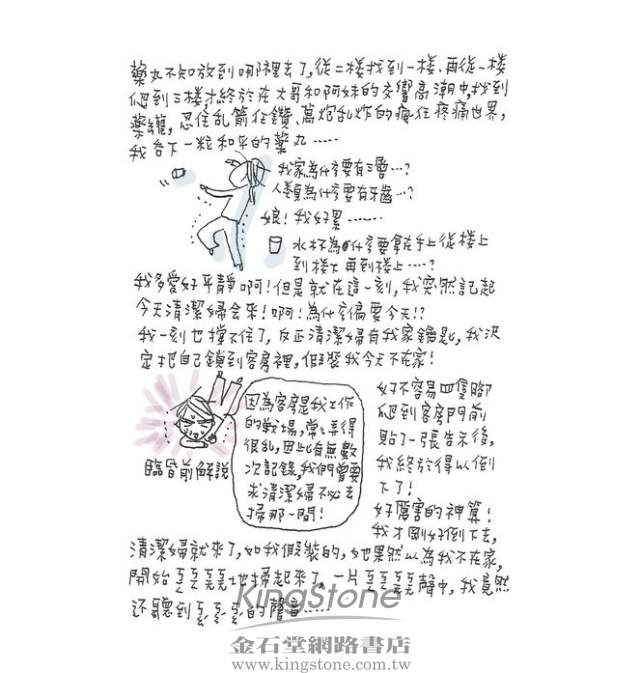 藥丸不知放到哪裡去了,從二樓找到一樓、再從一樓
爬到三樓,才終於在大哥和阿妹的交響高潮中,找到
藥罐,忍住乱箭在鑽、萬炮乱炸的瘋狂疼痛世界,
我吞下一粒和平的藥丸……
我家為什麼要有三層…?
人類為什麼要有牙齒…?
娘!我好累……
水杯為什麼要拿在手上從樓上
到樓下再到樓上……?
我多愛好平靜啊!但是就在這一刻,我突然記起
今天清潔婦会來!啊!為什麼偏要今天!?
我一刻也撐不住了,反正清潔婦有我家鑰匙,我決
定把自己鎖到客房裡,假裝我今天不在家!
因為客房是我工作
的戰場,常常弄得
很乱,因此有無數
次記錄,我們曾要
求清潔婦不必去
掃那一間!
臨昏前解說
好不容易四隻腳
爬到客房門前
貼了一張条後,
我終於得以倒
下了!
好厲害的神算!
我才剛好倒下去,
清潔婦就來了,如我假裝的,她果然以為我不在家,
開始乒乒乓乓地掃起來了,一片乒乒乓乓聲中,我竟然
还聽到
的聲音……
KingStone
金石堂網路書店
www.kingstone.com.tw